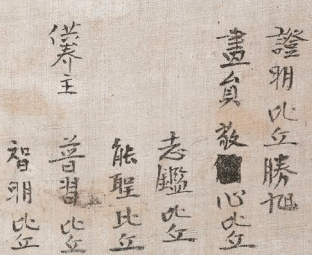 證明比丘勝旭
畫員敬心比丘
志鑑比丘
能聖比丘
供养主 普習比丘
智明比丘